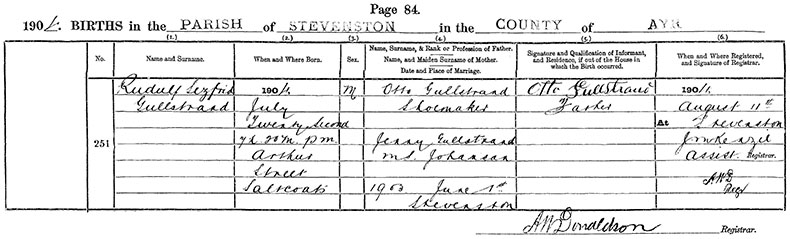 Page 84.
1904. BIRTHS in the PARISH of STEVENSTON in the COUNTY of AYR
(1.) (2.) (3.) (4.) (5.) (6.)
No. Name and Surname. When and Where Born. Sex. Name, Surname, & Rank or Profession of Father. Name, and Maiden Surname of Mother. Date and Place of Marriage. Signature and Qualification of Informant, and Residence, if out of the House in which the Birth occurred. When and Where Registered, and Signature of Registrar.
251
Rudolf Sezfrid
Gullstrand
1904.
July
Twenty Second
7h. 20m. p.m.
Arthur
Street
Saltcoats
M
Otto Gullstrand
Shoemaker
Jenny Gullstrand
m.s. Johansan
1903 June 1st
Stevenston
Otto Gullstrand
Father
1904.
August 11th
At Stevenston
Assist. Registrar.
AWD
Regr
AW Donaldson Registrar.